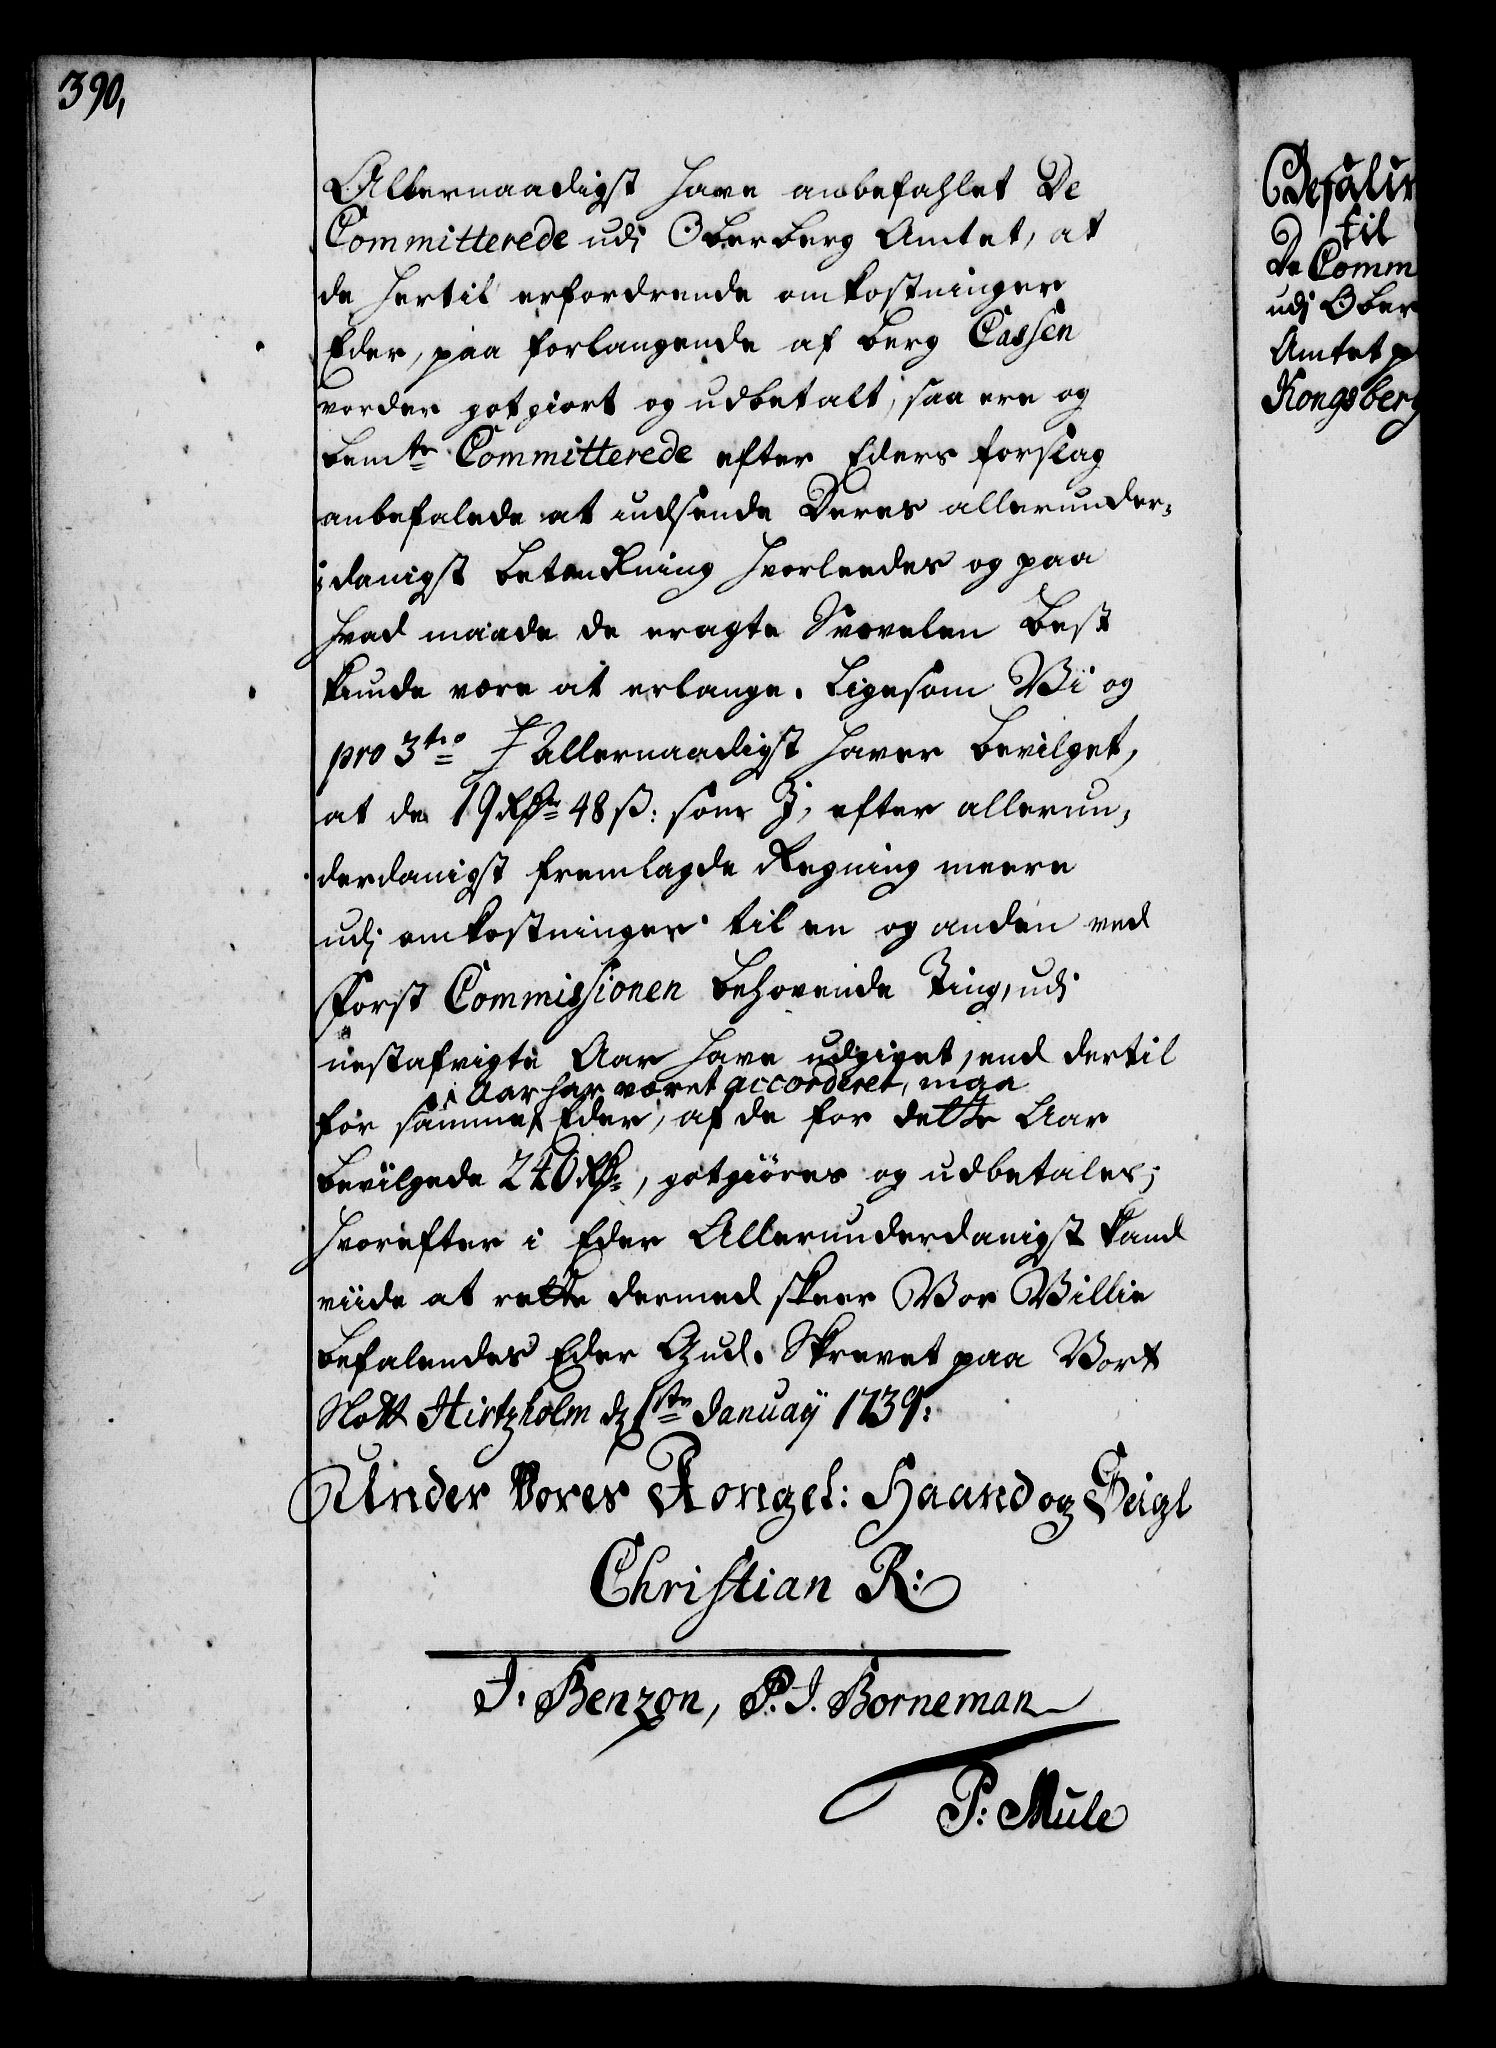 390,
Allernaadigst have anbefahlet De
Committerede udj Oberberg Amtet, at
de hertil erfordrende omkostninger
Eder, paa forlangende af berg Cassen
vorder gotgiort og udbetalt, saa ere og
bemte Committerede efter Eders forslag
anbefalede at indsende Deres allerunder-
danigst betænkning hvorleedes og paa
hvad maade de eragte Svovelen best
kunde være at erlange. Ligesom Vi og
pro 3tio Allernaadigst haver bevilget,
at de 19 Rdr 48 ß: som I, efter allerun-
derdanigst fremlagde Regning meere
udj omkostninger til en og anden ved
Forst Commissionen behövende Ting, udj
nestafvigte Aar have udgivet, end dertil
i Aar har været accorderet, maa
for samme Eder, af de for dette Aar
bevilgede 240 Rdr, gotgiöres og udbetales;
hvorefter i Eder Allerunderdanigst kand
viide at rette dermed skeer Vor Villie
befalendes Eder Gud. Skrevet paa Vort
Slott Hirtzholm d 1ste January 1739:
Under Vores Kongel: Haand og Seigl
Christian R:
J. Benzon, P. J. Borneman
P: Mule
til
De Comm
udj Ober
Amtet p
Kongsberg